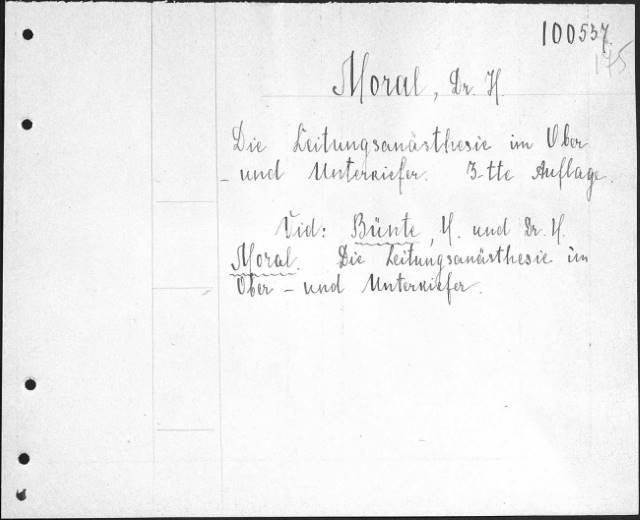 100537
175
Moral, Dr. H.
Die Leitungsanästhesie im Ober
- und Unterkiefer. 3-tte Auflage.
Vid: Bünte, H. und Dr. H.
Moral. Die Leitungsanästhesie im
Ober - und Unterkiefer.